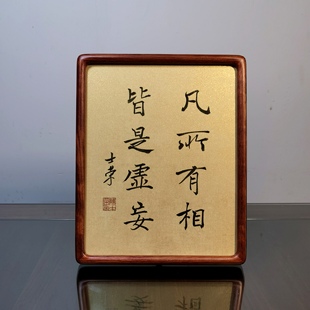 凡所有相
皆是虚妄
士荣